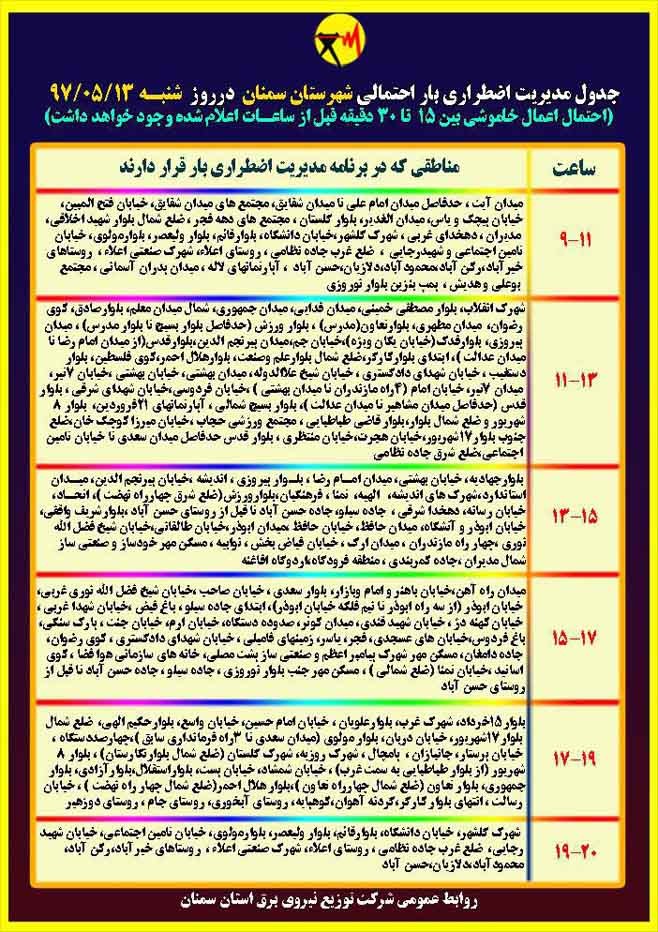 جدول مدیریت اضطراری بار احتمالی شهرستان سمنان درروز شنبه ۹۷/۰۵/۱۳
(احتمال اعمال خاموشی بین ۱۵ تا ۳۰ دقیقه قبل از ساعات اعلام شده وجود خواهد داشت)
ساعت
مناطقی که در برنامه مدیریت اضطراری بار قرار دارند
۹-۱۱
میدان آیت ، حدفاصل میدان امام علی تا میدان شقایق، مجتمع های میدان شقایق، خیابان فتح المبین،
خیابان پیچک و یاس، میدان الغدیر، بلوار گلستان ، مجتمع های دهه فجر ، ضلع شمال بلوار شهید اخلاقی،
مدیران ، دهخدای غربی ، شهرک گلشهر،خیابان دانشگاه، بلوارقائم، بلوار ولیعصر، بلوارمولوی، خیابان
تامین اجتماعی و شهیدرجایی ، ضلع غرب جاده نظامی ، روستای اعلاء، شهرک صنعتی اعلاء ، روستاهای
خیرآباد،رکن آباد،محمودآباد،دلازیان،حسن آباد ، آپارتمانهای لاله ، میدان پدران آسمانی ، مجتمع
بوعلی وهدیش ، پمپ بنزین بلوار نوروزی
۱۱-۱۳
شهرک انقلاب، بلوار مصطفی خمینی، میدان فدایی، میدان جمهوری، شمال میدان معلم، بلوارصادق، کوی
رضوان، میدان مطهری، بلوارتعاون(مدرس) ، بلوار ورزش (حدفاصل بلوار بسیج تا بلوار مدرس) ، میدان
پیروزی، بلوارفدک(خیابان یگان ویژه)، خیابان جم،میدان پیرنجم الدین،بلوارقدس(از میدان امام رضا تا
میدان عدالت )، ابتدای بلوارکارگر،ضلع شمال بلوارعلم وصنعت،بلوارهلال احمر،کوی فلسطین، بلوار
دستغیب ، خیابان شهدای دادگستری ، خیابان شیخ علاالدوله، میدان بهشتی ، خیابان بهشتی، خیابان ۷تیر،
میدان ۷تیر، خیابان امام (۴راه مازندران تا میدان بهشتی ) ، خیابان فردوسی،خیابان شهدای شرقی ، بلوار
قدس (حدفاصل میدان مشاهیر تا میدان عدالت)، بلوار بسیج شمالی ، آپارتمانهای ۲۱فروردین، بلوار ۸
شهریور و ضلع شمال بلوار،بلوار قاضی طباطبایی ، مجتمع ورزشی حجاب ، خیابان میرزا کوچک خان،ضلع
جنوب بلوار۱۷شهریور،خیابان هجرت،خیابان منتظری ، بلوار قدس حدفاصل میدان سعدی تا خیابان تامین
اجتماعی،ضلع شرق جاده نظامی
۱۳-۱۵
بلوارجهادیه، خیابان بهشتی، میدان امام رضا ، بلوار پیروزی ، اندیشه ،خیابان پیرنجم الدین، میدان
استاندارد،شهرک های اندیشه، الهیه، نمثا ، فرهنگیان،بلوارورزش(ضلع شرق چهارراه نهضت )، اتحاد،
خیابان رسانه، دهخدا شرقی ، جاده سیلو، جاده حسن آباد تا قبل از روستای حسن آباد ،بلوارشریف واقفی،
خیابان ابوذر و آتشگاه، میدان حافظ، خیابان حافظ ،میدان ابوذر،خیابان طالقانی،خیابان شیخ فضل الله
نوری ، چهار راه مازندران، میدان ارک ، خیابان فیاض بخش ، نوابیه ، مسکن مهر خودساز و صنعتی ساز
شمال مدیران ،جاده کمربندی ، منطقه فرودگاه،اردوگاه افاغنه
۱۵-۱۷
میدان راه آهن،خیابان باهنر و امام وبازار، بلوار سعدی ، خیابان صاحب ،خیابان شیخ فضل الله نوری غربی،
خیابان ابوذر (از سه راه ابوذر تا نیم فلکه خیابان ابوذر)، ابتدای جاده سیلو ، باغ فیض ، خیابان شهدا غربی ،
خیابان کهنه دژ ، خیابان شهید قندی ، میدان کوثر، صدوده دستگاه، خیابان ارم، خیابان جنت ، پارک سنگی،
باغ فردوس،خیابان های عسجدی ، فجر، یاسر، زمینهای فامیلی ، خیابان شهدای دادگستری ، کوی رضوان،
جاده دامغان، مسکن مهر شهرک پیامبر اعظم و صنعتی ساز پشت مصلی، خانه های سازمانی هوا فضا ، کوی
اساتید ، خیابان نمثا (ضلع شمالی ) ، مسکن مهر جنب بلوار نوروزی ، جاده سیلو ، جاده حسن آباد تا قبل از
روستای حسن آباد
۱۷-۱۹
بلوار ۱۵خرداد، شهرک غرب، بلوارعلویان ، خیابان امام حسین، خیابان واسع، بلوارحکیم الهی، ضلع شمال
بلوار ۱۷شهریور، خیابان دربان، بلوار مولوی (میدان سعدی تا ۳راه فرمانداری سابق)،چهارصددستگاه ،
خیابان پرستار، جانبازان ، بامچال ، شهرک روزیه، شهرک گلستان (ضلع شمال بلوارنگارستان) ، بلوار ۸
شهریور (از بلوار طباطبایی به سمت غرب) ، خیابان شمشاد، خیابان پست، بلواراستقلال،بلوارآزادی، بلوار
جمهوری، بلوار تعاون (ضلع شمال چهارراه تعاون )، بلوار هلال احمر(ضلع شمال چهار راه نهضت ) ، خیابان
رسالت ، انتهای بلوار کارگر،گردنه آهوان،کوهپایه، روستای آبخوری، روستای جام ، روستای دوزهیر
۱۹-۲۰
شهرک گلشهر، خیابان دانشگاه، بلوارقائم، بلوار ولیعصر، بلوارمولوی، خیابان تامین اجتماعی، خیابان شهید
رجایی، ضلع غرب جاده نظامی ، روستای اعلاء، شهرک صنعتی اعلاء ، روستاهای خیرآباد،رکن آباد،
محمودآباد،دلازیان،حسن آباد
روابط عمومی شرکت توزیع نیروی برق استان سمنان